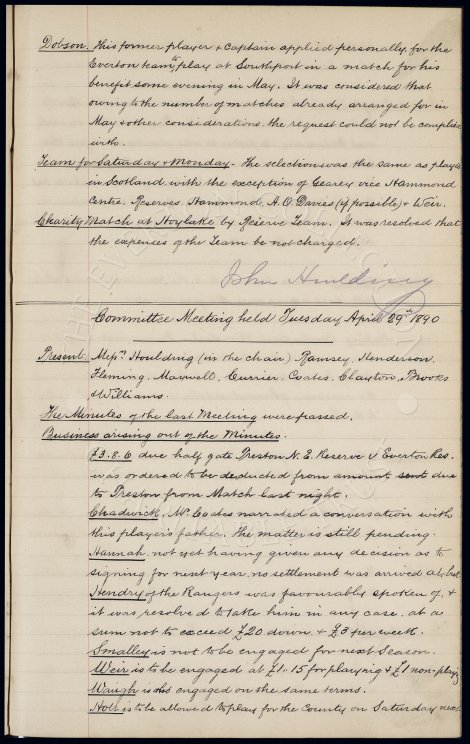 Dobson. This former player & Captain applied personally for the
Everton team to play at Southport in a match for his
benefit some evening in May. It was considered that
owing to the number of matches already arranged for in
May & other considerations the request could not be complied
with.
Team for Saturday & Monday. The selection was the same as played
in Scotland with the exception of Geary vice Hammond
Centre. Reserves Hammond, A. O. Davies (if possible) & Weir.
Charity Match at Hoylake by Reserve Team. It was resolved that
the expences of the Team be not charged.
John Houlding
Committee Meeting held Tuesday April 29th 1890
Present. Messrs. Houlding (in the chair) Ramsey, Henderson,
Fleming, Maxwell, Currier, Coates, Clayton, Brooks
& Williams.
The Minutes of the last Meeting were passed.
Business arising out of the Minutes.
£3.8.6 due half gate Preston N. E. Reserve v Everton Res.
was ordered to be deducted from amount sent due
to Preston from Match last night.
Chadwick. Mr. Coates narrated a conversation with
this player's father. The matter is still pending.
Hannah not yet having given any decision as to
signing for next year no settlement was arrived at, but
Hendry of the Rangers was favourably spoken of, &
it was resolved to take him in any case, at a
sum not to exceed £20 down & £3 per week.
Smalley is not to be engaged for next Season.
Weir is to be engaged at £1.15 for playing & £1 non-playing
Waugh is engaged on the same terms.
Holt is to be allowed to play for the County on Saturday next.